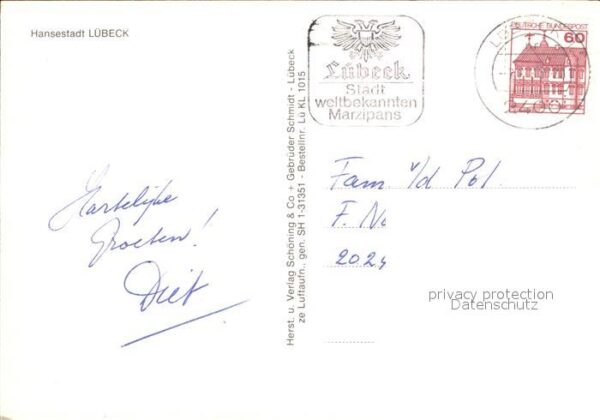 Hansestadt LÜBECK
Hartelijke
Groeten!
Diet
Herst. u. Verlag Schöning & Co + Gebrüder Schmidt - Lübeck
ze Luftaufn., gen. SH 1-31351 - Bestellnr. Lü KL 1015
Lübeck
Stadt
weltbekannten
Marzipans
DEUTSCHE BUNDESPOST
60
2400
Fam v/d Pol
F. No
2024
privacy protection
Datenschutz